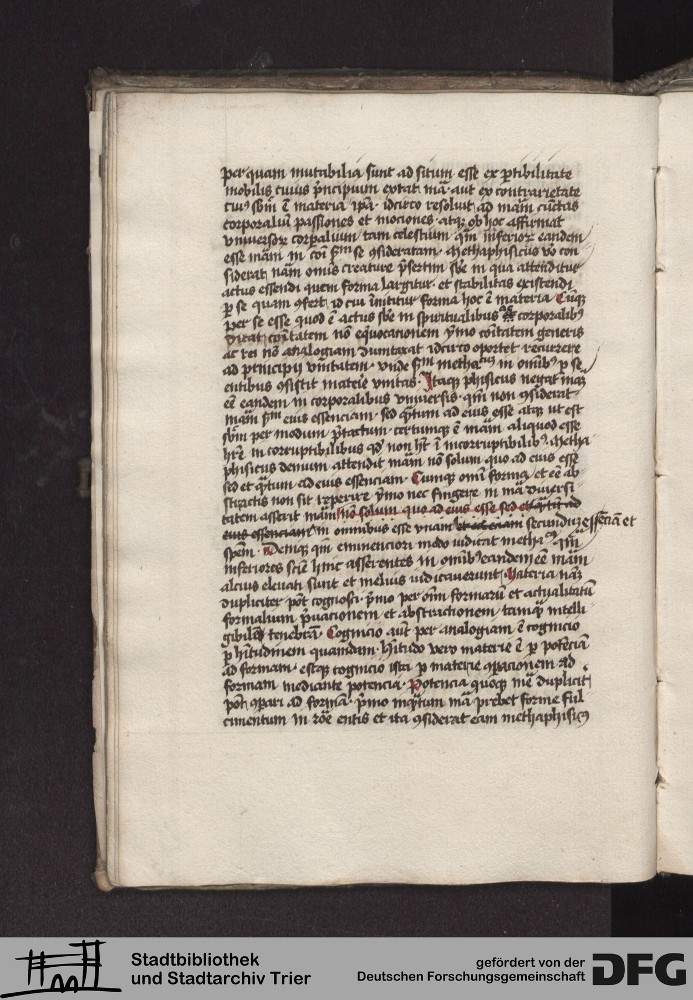 per quam mutabilia sunt ad situm esse ex ptibilitate
mobilis cuius pncipium extat mā aut ex contrarietate
cuiꝰ sbm ē materia ipā idcirco resoluit ad mām cūctas
corporaliū passiones et mociones atqꝫ ob hoc affirmat
vniuersoꝝ corpalium tam celestium qm inferioꝝ eandem
esse mām in coī sm se ꝯsideratam Methaphisicus vo con
siderat nām omīs creature psertim sbe in qua attenditur
actus essendi quem forma largitur et stabilitas existendi
p se quam ꝯfert id cui innititur forma hoc ē materia Cūqꝫ
per se esse quod ē actus sbe in spiritualibus corporalibꝰ
dicat cōitatem nō equocationem ymo cōitatem generis
ac rei nō analogiam dumtaxat idcirco oportet recurrere
ad principii vnitatem vnde sm metha in omībꝰ p se
entibus ꝯsistit materie vnitas Itaqꝫ phisicus negat mām
eē eandem in corporalibus vniuersis qm non ꝯsiderat
mām sm eius essenciam sed qtum ad eius esse atqꝫ ut est
sbm per modum certumqꝫ ē mām aliquod esse
hre in corruptibilibus qd non ht ī incorruptibilibꝰ Metha
phisicus demum attendit mām nō solum quo ad eius esse
sed et qtum ad eius essenciam Cumqꝫ omī forma et eē ab
stractis non sit reperire ymo nec fingere in mā diuersi
tatem asserit mām nō solum quo ad eius esse sed et qtū ad
eius essenciam in omnibus esse vnam secundū essēciam et
spem Demqꝫ qm eminenciori modo iudicat metha qm
inferiores scīe hinc asserentes in omībꝰ eandem eē mām
alcius eleuati sunt et melius iudicauerunt Materia naꝫ
dupliciter pōt cognosci pmo per oīm formarū et actualitatū
formalium pūacionem et abstractionem tamqꝫ intelli
gibilē tenebrā Cognicio aūt per analogiam ē cognicio
p hītudinem quamdam hītudo vero materie ē p potēciā
ad formam estqꝫ cognicio ista p materie ꝯpacionem ad
formam mediante potencia Potencia quoqꝫ mē duplicit
pōt ꝯpari ad formā pmo inqtum mā prebet forme ful
cimentum in rōe entis et ita ꝯsiderat eam methaphisicꝰ
Stadtbibliothek
und Stadtarchiv Trier
gefördert von der
Deutschen Forschungsgemeinschaft
DFG